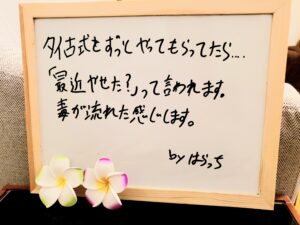 タイ古式をずっとやってもらってたら....
「最近やせた?」って言われます。
毒が流れた感じします。
by はらっち